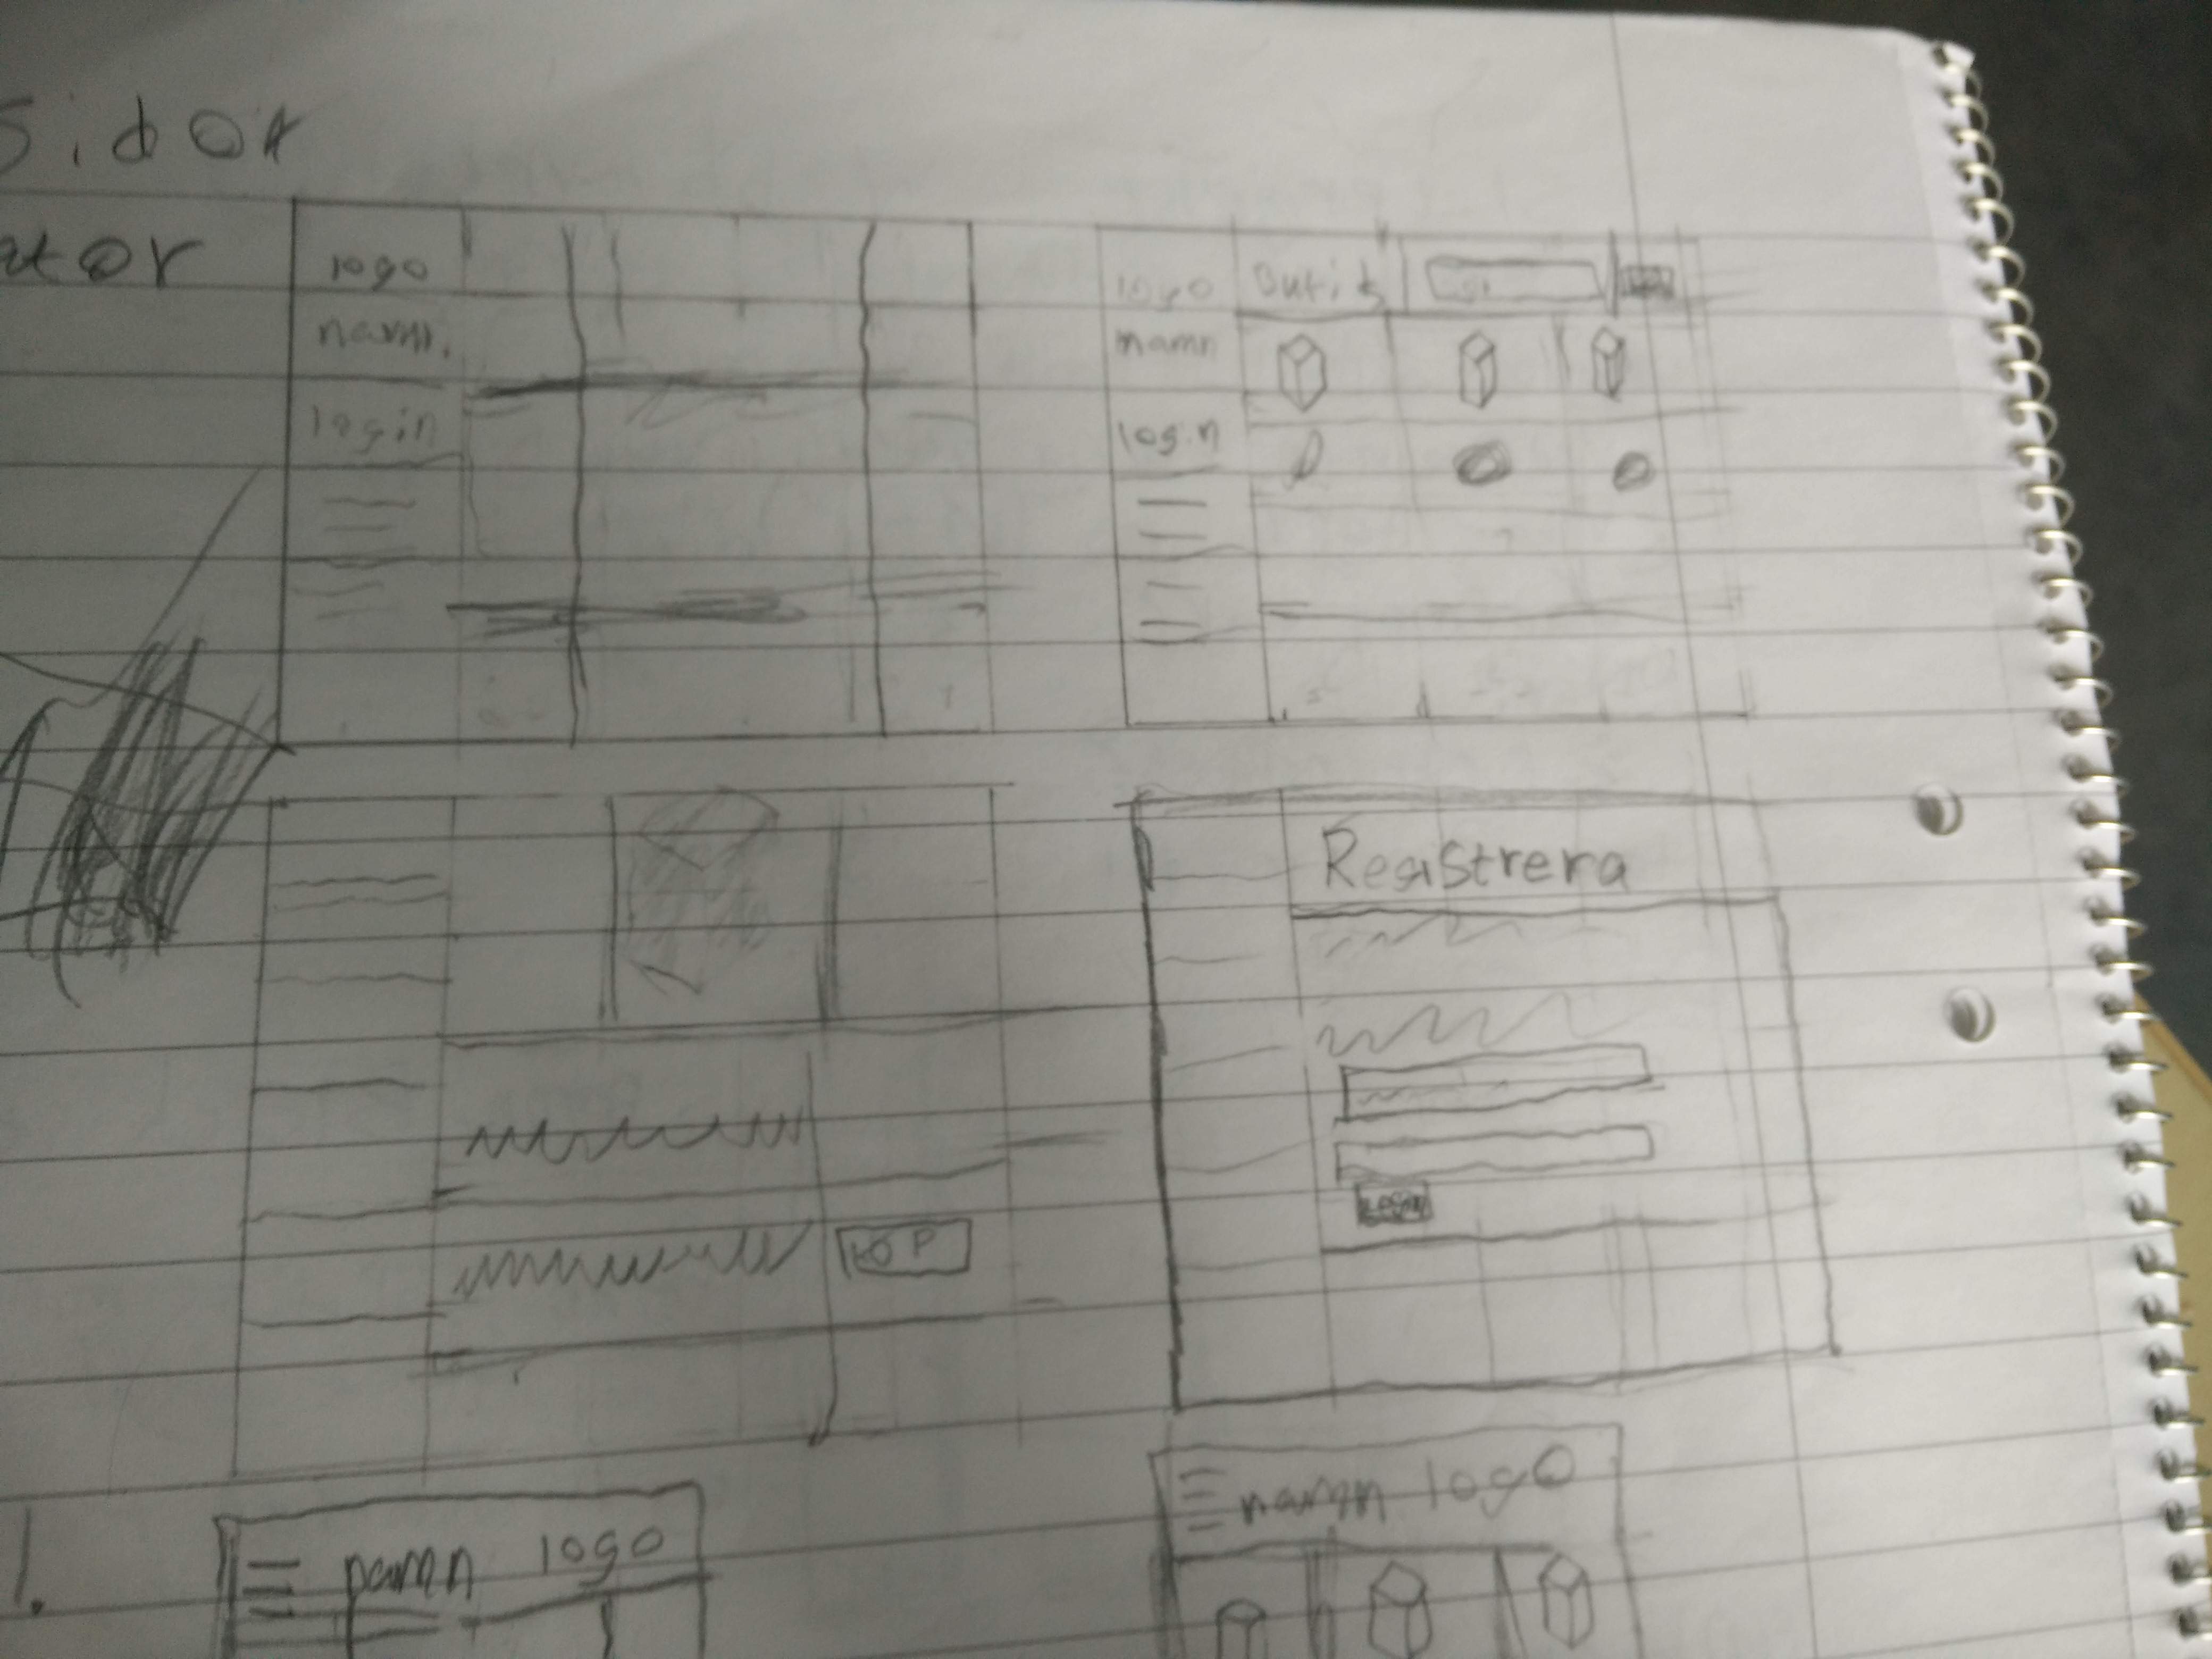 sidor
ator
logo
namn
login
logo
Butik
namn
login
Registrera
Login
KÖP
namn logo
1.
namn logo